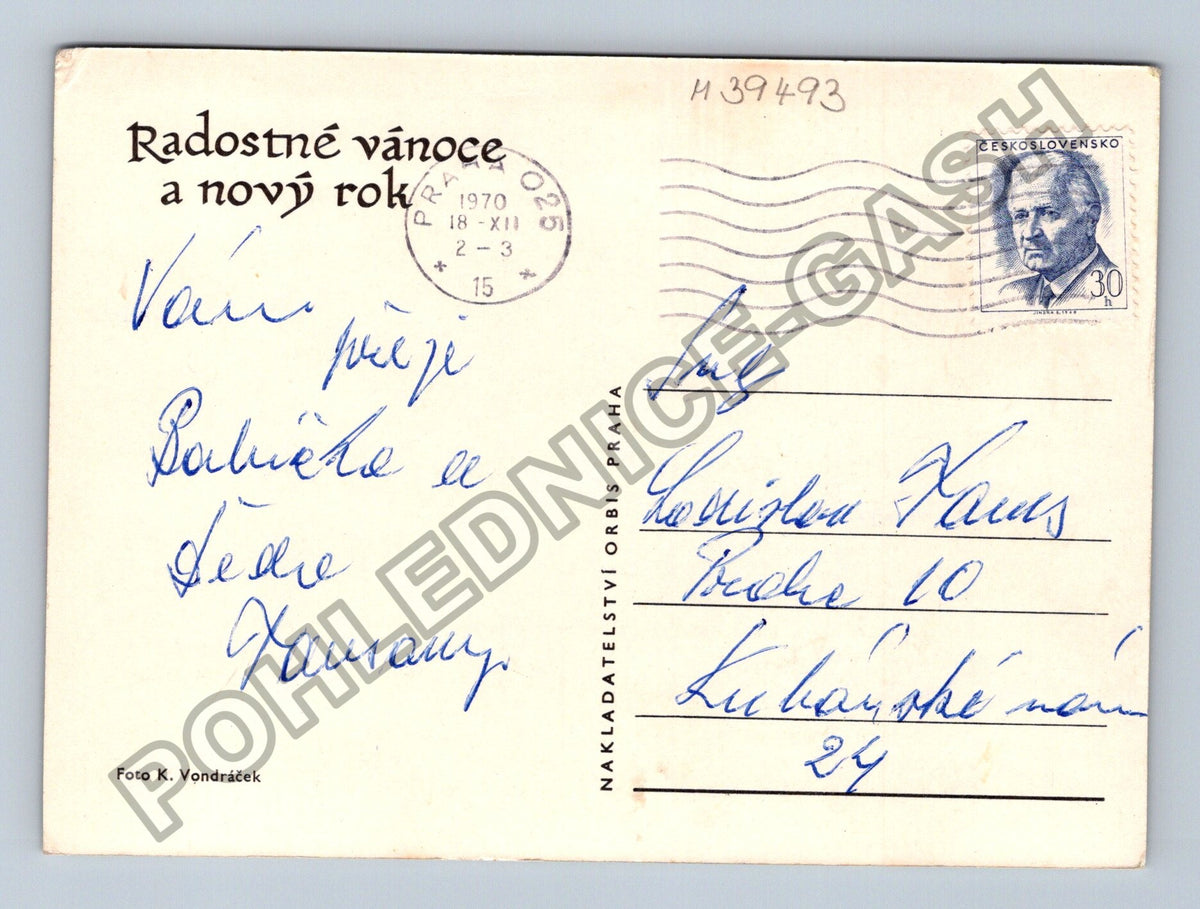 M 39493
Radostné vánoce
a nový rok
PRAHA 025
1970
18 -XII
2 - 3
15
ČESKOSLOVENSKO
30
h
Vám
přeje
Babička a
Děda
Ing
Ladislav
Praha 10
Kubánské nám
24
NAKLADATELSTVÍ ORBIS PRAHA
Foto K. Vondráček
POHLEDNICE-GASH